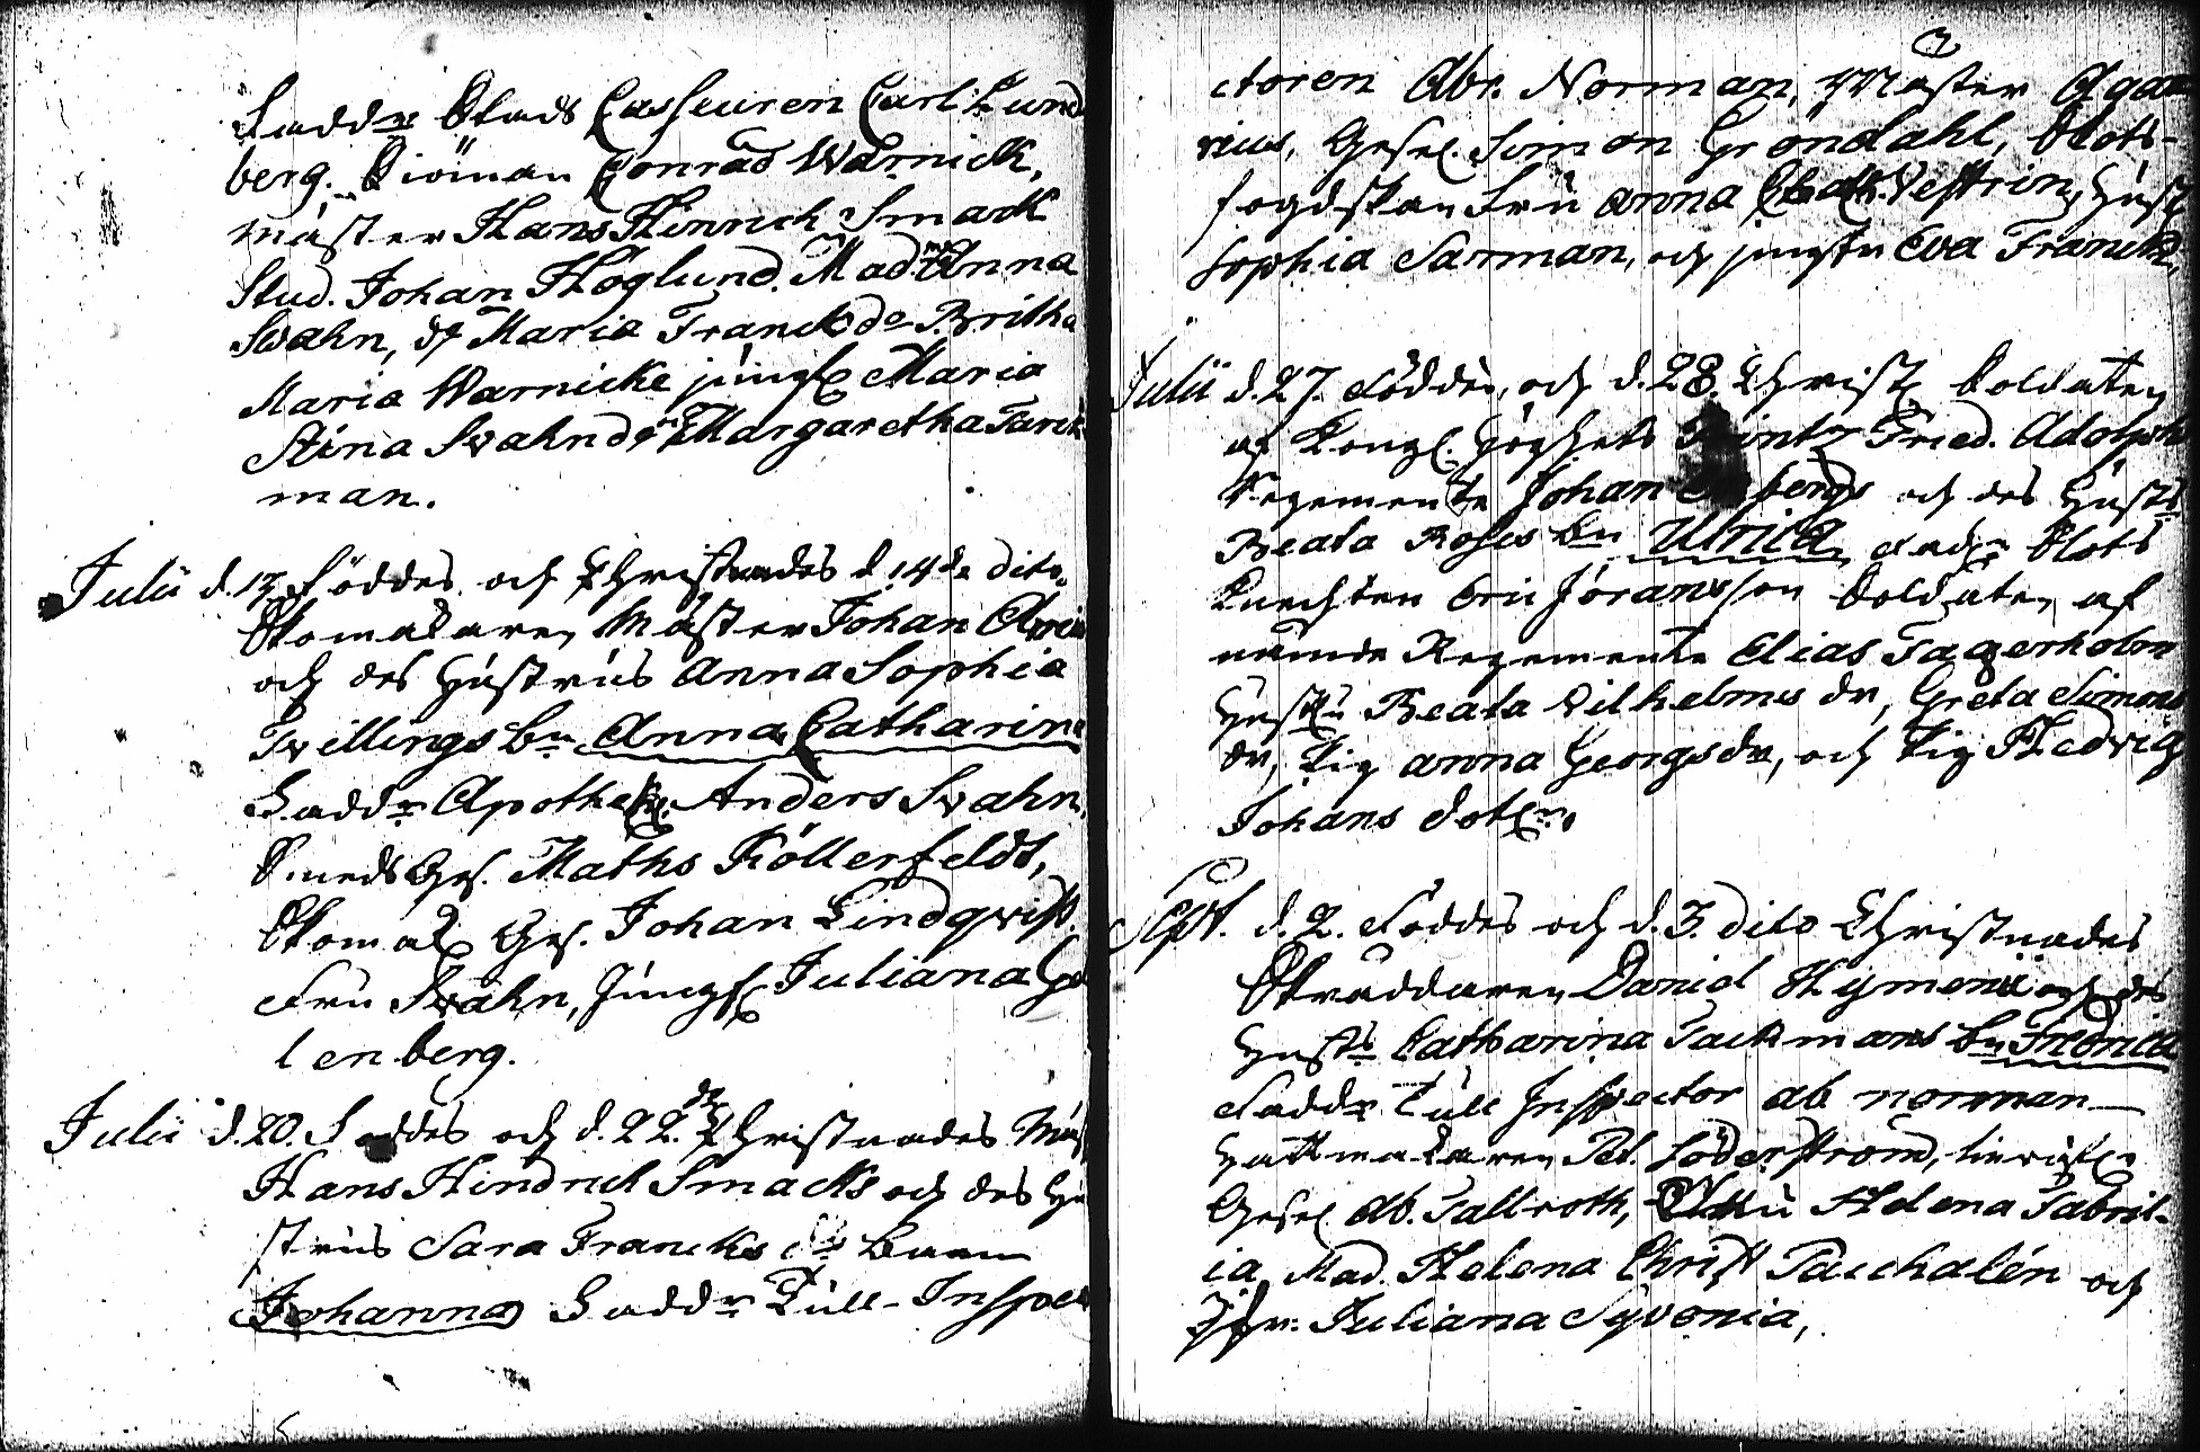 Faddr Stads Casseuren Carl Lund
berg. Rådman Conrad Warnick,
mäster Hans Hinrich Smack
Stud. Johan Höglund. Mad:me Anna
Swahn, do Maria Franck do Britha
Maria Warnicke jungf Maria
Stina Swahn do Margaretha
man.
Julii d. 13 föddes och Christnades d. 14de dito
Skomakaren Mäster Johan
och des Hustrus Anna Sophia
Twillings bn Anna Catharina
Faddr Apothek. Anders Swahn,
Smeds Ges. Maths Föllerfeldt,
Skomak Ges. Johan Lindqvist.
Fru Swahn, Jungf Juliana
lenberg.
Julii d. 20. Föddes och d. 22. de Christnades Mäst
Hans Hindrich Smacks och des Hu
strus Sara Francks barn
Johanna Faddr Tull-Inspec
3
ctoren Abr. Norman, Mäster Agan
rius, Gesel. Simon Gröndahl, Slots-
fogdskan Fru Anna Vestrin, Hust
Sophia Sarman, och jungfru Eva Franck,
Julii d. 27. föddes, och d. 28. Christ Soldaten
af Kongl. Höghets Printz Fried. Adolphs
Regemente Johan bergs och des Hustr
Beata Roses bn Ulrica Faddr Slots
Knechten Eric Jöransson Soldaten af
nämde Regemente Elias Fagerholm
Hustru Beata Vilhelms dr, Greta Simons
dr, Pig Anna Georgsdr, och Pig Hedvig
Johans dotr.
Sept. d. 2. Föddes och d. 3. dito Christnades
Skräddaren Daniel Hymenii och des
Hustr Catharina Packmans bn Fredrica
Faddr Tull Inspector ab norman
Hattmakaren Pet. Söderström,
Gesel Ab. Tallroth, Helena Fabril-
ia, Mad. Helena Christ Paschalén och
Jfr. Juliana Syvonia,